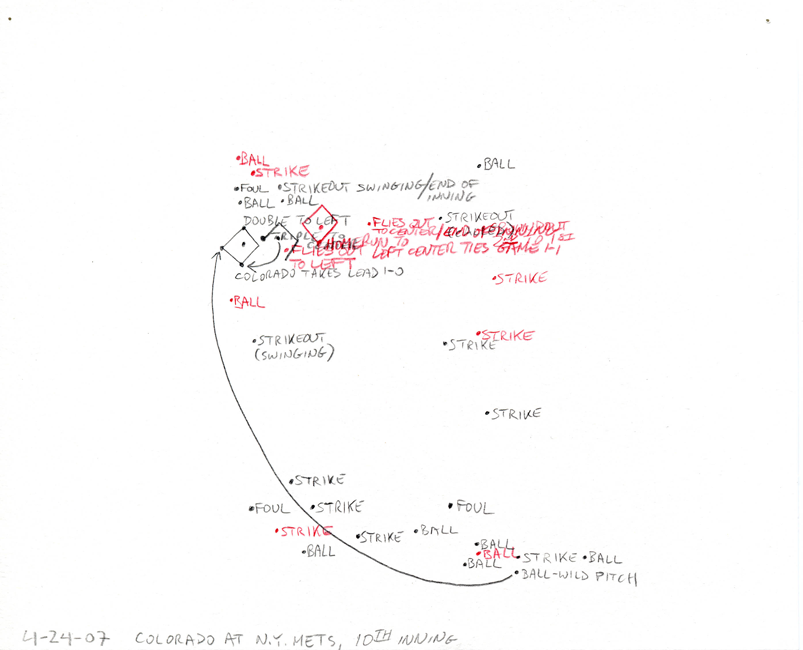 BALL
STRIKE
BALL
FOUL
STRIKEOUT SWINGING/END OF
INNING
BALL
BALL
DOUBLE TO LEFT
FLIES OUT
STRIKEOUT
TO CENTER/
TRIPLE TO
HOMERUN TO
FLIES OUT
LEFT CENTER TIES GAME 1-1
TO LEFT
COLORADO TAKES LEAD 1-0
STRIKE
BALL
STRIKE
STRIKEOUT
(SWINGING)
STRIKE
STRIKE
STRIKE
FOUL
STRIKE
FOUL
STRIKE
STRIKE
BALL
BALL
BALL
BALL
STRIKE
BALL
BALL
BALL-WILD PITCH
4-24-07 COLORADO AT N.Y. METS, 10TH INNING